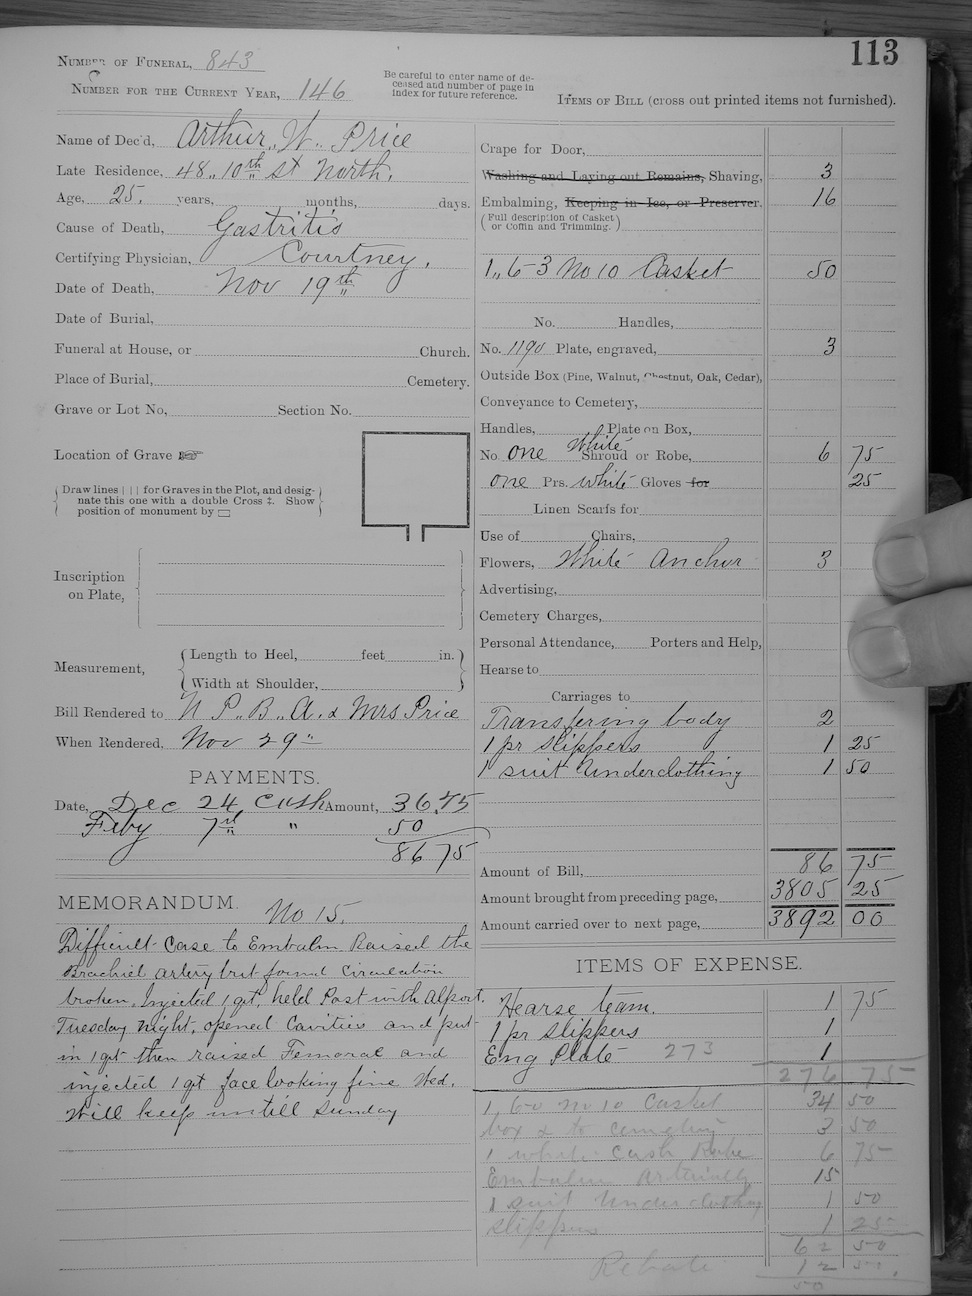 113
NUMBER OF FUNERAL, 843
NUMBER FOR THE CURRENT YEAR, 146
Be careful to enter name of de-
ceased and number of page in
index for future reference.
ITEMS OF BILL (cross out printed items not furnished).
Name of Dec'd, Arthur W. Price
Late Residence, 48 10th St North.
Age, 25. years, months, days.
Cause of Death, Gastritis
Certifying Physician, Courtney.
Date of Death, Nov 19th
Date of Burial,
Funeral at House, or Church.
Place of Burial, Cemetery.
Grave or Lot No, Section No.
Location of Grave ☞
Draw lines | | | for Graves in the Plot, and desig-
nate this one with a double Cross ‡. Show
position of monument by ▭
Inscription
on Plate,
Measurement,
Length to Heel, feet in.
Width at Shoulder,
Bill Rendered to N. P. B. A. & Mrs Price
When Rendered, Nov 29"
PAYMENTS.
Date, Dec 24 Cash Amount, 36.75
Feby 7th " 50
86 75
MEMORANDUM. No 15.
Difficult Case to Embalm Raised the
Brachiel artery but found Circulation
broken. Injected 1 qrt. held Post with Alport.
Tuesday night, opened Cavities and put
in 1 qt then raised Femoral and
injected 1 qt face looking fine Wed.
Will keep untill Sunday
Crape for Door,
Washing and Laying out Remains, Shaving, 3
Embalming, Keeping in Ice, or Preserver. 16
(Full description of Casket
or Coffin and Trimming.)
1 6-3 No 10 Casket 50
No. Handles,
No. 1190 Plate, engraved, 3
Outside Box (Pine, Walnut, Chestnut, Oak, Cedar),
Conveyance to Cemetery,
Handles, Plate on Box,
No. One White Shroud or Robe, 6 75
One Prs. White Gloves for 25
Linen Scarfs for
Use of Chairs,
Flowers, White Anchor 3
Advertising,
Cemetery Charges,
Personal Attendance, Porters and Help,
Hearse to
Carriages to
Transfering body 2
1 pr slippers 1 25
1 suit Underclothing 1 50
Amount of Bill, 86 75
Amount brought from preceding page, 3805 25
Amount carried over to next page, 3892 00
ITEMS OF EXPENSE.
Hearse team. 1 75
1 pr slippers 1
Eng Plate 273 1
276 75
1 6-0 No 10 Casket 34 50
box & to cemetery 3 50
1 white Cash Robe 6 75
Embalm Arterially 15
1 suit Underclothing 1 50
slippers 1 25
62 50
Rebate 12 50.
50